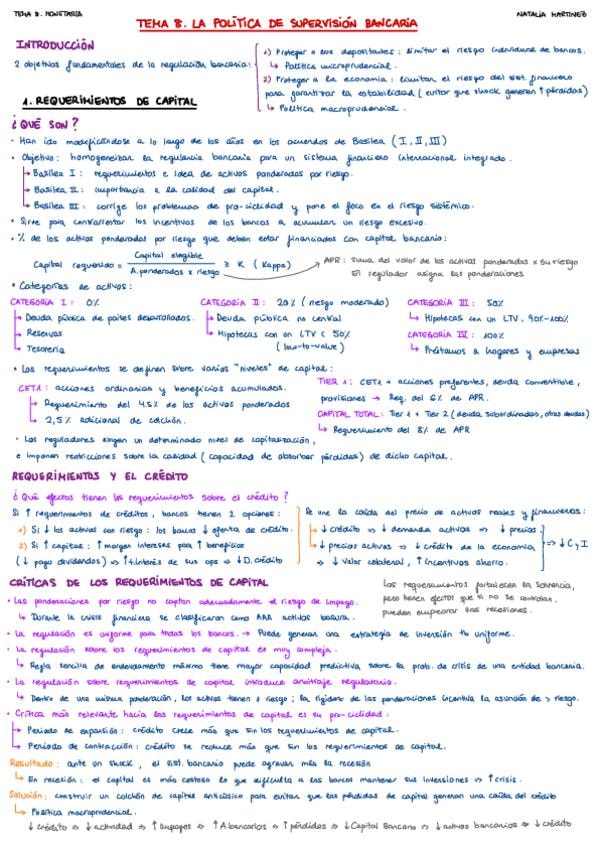 TEMA 8. MONETARIA
NATALIA MARTINEZ
TEMA 8. LA POLÍTICA DE SUPERVISIÓN BANCARIA
INTRODUCCIÓN
2 objetivos fundamentales de la regulación bancaria:
1) Proteger a los depositantes: limitar el riesgo individual de bancos.
↳ Política microprudencial.
2) Proteger a la economía: limitan el riesgo del sist. financiero
para garantizar la estabilidad (evitar que shock generen ↑ pérdidas)
↳ Política macroprudencial.
1. REQUERIMIENTOS DE CAPITAL
¿QUÉ SON?
• Han ido modificándose a lo largo de los años en los acuerdos de Basilea (I, II, III)
• Objetivo: homogeneizar la regulación bancaria para un sistema financiero internacional integrado.
↳ Basilea I: requerimientos e idea de activos ponderados por riesgo.
↳ Basilea II: importancia a la calidad del capital.
↳ Basilea III: corrige los problemas de pro-ciclidad y pone el foco en el riesgo sistémico.
• Sirve para contrarrestar los incentivos de los bancos a acumular un riesgo excesivo.
• % de los activos ponderados por riesgo que deben estar financiados con capital bancario:
Capital requerido = Capital elegible / A.ponderados x riesgo ≥ K (Kappa)
APR: suma del valor de los activos ponderados x su riesgo
El regulador asigna las ponderaciones
• Categorías de activos:
CATEGORÍA I: 0%
↳ Deuda pública de países desarrollados.
↳ Reservas
↳ Tesorería
CATEGORÍA II: 20% (riesgo moderado)
↳ Deuda pública no central
↳ Hipotecas con un LTV < 50%
(low-to-value)
CATEGORÍA III: 50%
↳ Hipotecas con un LTV. 90%-100%
CATEGORÍA IV: 100%
↳ Préstamos a hogares y empresas
• Los requerimientos se definen sobre varios "niveles" de capital:
CET1: acciones ordinarias y beneficios acumulados.
↳ Requerimiento del 4.5% de los activos ponderados
↳ 2,5% adicional de colchón.
TIER 1: CET1 + acciones preferentes, deuda convertible,
provisiones → Req. del 6% de APR.
CAPITAL TOTAL: Tier 1 + Tier 2 (deuda subordinados, otras deudas)
↳ Requerimiento del 8% de APR
• Los reguladores exigen un determinado nivel de capitalización,
e imponen restricciones sobre la calidad (capacidad de absorber pérdidas) de dicho capital.
REQUERIMIENTOS Y EL CRÉDITO
¿Qué efectos tienen los requerimientos sobre el crédito?
Si ↑ requerimientos de créditos, bancos tienen 2 opciones:
1) Si ↓ los activos con riesgo: los bancos ↓ oferta de crédito.
2) Si ↑ capital: ↑ margen intereses para ↑ beneficios
(↓ pago dividendos) ⇒ ↑ t.interés de sus ops ⇒ ↓ D.crédito
Se une la caída del precio de activos reales y financieros:
↓ crédito ⇒ ↓ demanda activos ⇒ ↓ precios
↓ precios activos ⇒ ↓ crédito de la economía
⇒ ↓ Valor colateral, ↑ incentivos ahorro.
⇒ ↓ C y I
CRÍTICAS DE LOS REQUERIMIENTOS DE CAPITAL
Los requerimientos fortalecen la solvencia,
pero tienen efectos que si no se controlan,
pueden empeorar las recesiones.
• Las ponderaciones por riesgo no captan adecuadamente el riesgo de impago.
↳ Durante la crisis financiera se clasificaron como AAA activos basura.
• La regulación es uniforme para todos los bancos. → Puede generar una estrategia de inversión tb uniforme.
• La regulación sobre los requerimientos de capital es muy compleja.
↳ Regla sencilla de endeudamiento máximo tiene mayor capacidad predictiva sobre la prob. de crisis de una entidad bancaria.
• La regulación sobre requerimientos de capital introduce arbitraje regulatorio.
↳ Dentro de una misma ponderación, los activos tienen ≠ riesgo; la rigidez de las ponderaciones incentiva la asunción de > riesgo.
• Crítica más relevante hacia los requerimientos de capital es su pro-ciclidad:
↳ Periodo de expansión: crédito crece más que sin los requerimientos de capital.
↳ Periodo de contracción: crédito se reduce más que sin los requerimientos de capital.
Resultado: ante un shock, el sist. bancario puede agravar más la recesión
↳ En recesión: el capital es más costoso lo que dificulta a los bancos mantener sus inversiones ⇒ ↑ crisis.
Solución: construir un colchón de capital anticíclico para evitar que las pérdidas de capital generen una caída del crédito
↳ Política macroprudencial.
↓ Crédito ⇒ ↓ actividad ⇒ ↑ Impagos ⇒ ↑ A.bancarios ⇒ ↑ pérdidas ⇒ ↓ Capital Bancario ⇒ ↓ activos bancarios ⇒ ↓ crédito